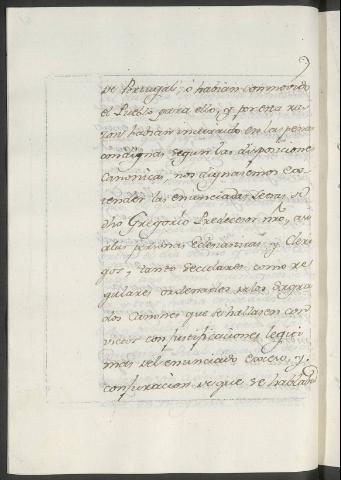 de Portugal; ó habian conmovido
el Pueblo para ello, y por esta ra-
zon habian incurrido en las penas
condignas segun las disposiciones
canonicas, nos dignasemos ex-
tender las enunciadas Letras de
dho Gregorio Predecesor nro, a
las personas Eclesiasticas, y Cleri-
gos, tanto seculares como re-
gulares ordenados de los Sagra-
dos Canones que se hallasen con-
victos con justificaciones legiti-
mas del enunciado exceso, y
conjuracion de que se hablaba